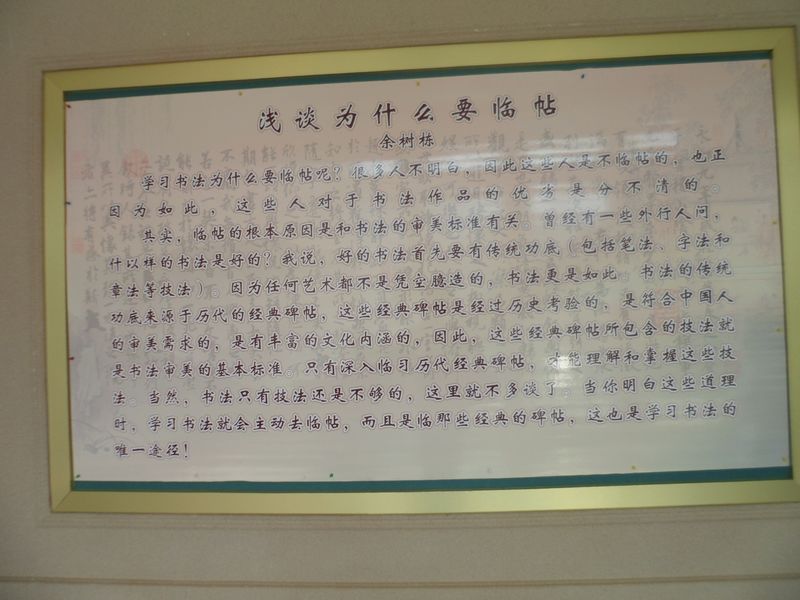 浅谈为什么要临帖
余树栋
学习书法为什么要临帖呢？很多人不明白，因此这些人是不临帖的，也正
因为如此，这些人对于书法作品的优劣是分不清的。
其实，临帖的根本原因是和书法的审美标准有关。曾经有一些外行人问，
什以样的书法是好的？我说，好的书法首先要有传统功底（包括笔法、字法和
章法等技法）。因为任何艺术都不是凭空臆造的，书法更是如此。书法的传统
功底来源于历代的经典碑帖，这些经典碑帖是经过历史考验的，是符合中国人
的审美需求的，是有丰富的文化内涵的，因此，这些经典碑帖所包含的技法就
是书法审美的基本标准。只有深入临习历代经典碑帖，才能理解和掌握这些技
法。当然，书法只有技法还是不够的，这里就不多谈了。当你明白这些道理
时，学习书法就会主动去临帖，而且是临那些经典的碑帖，这也是学习书法的
唯一途径！